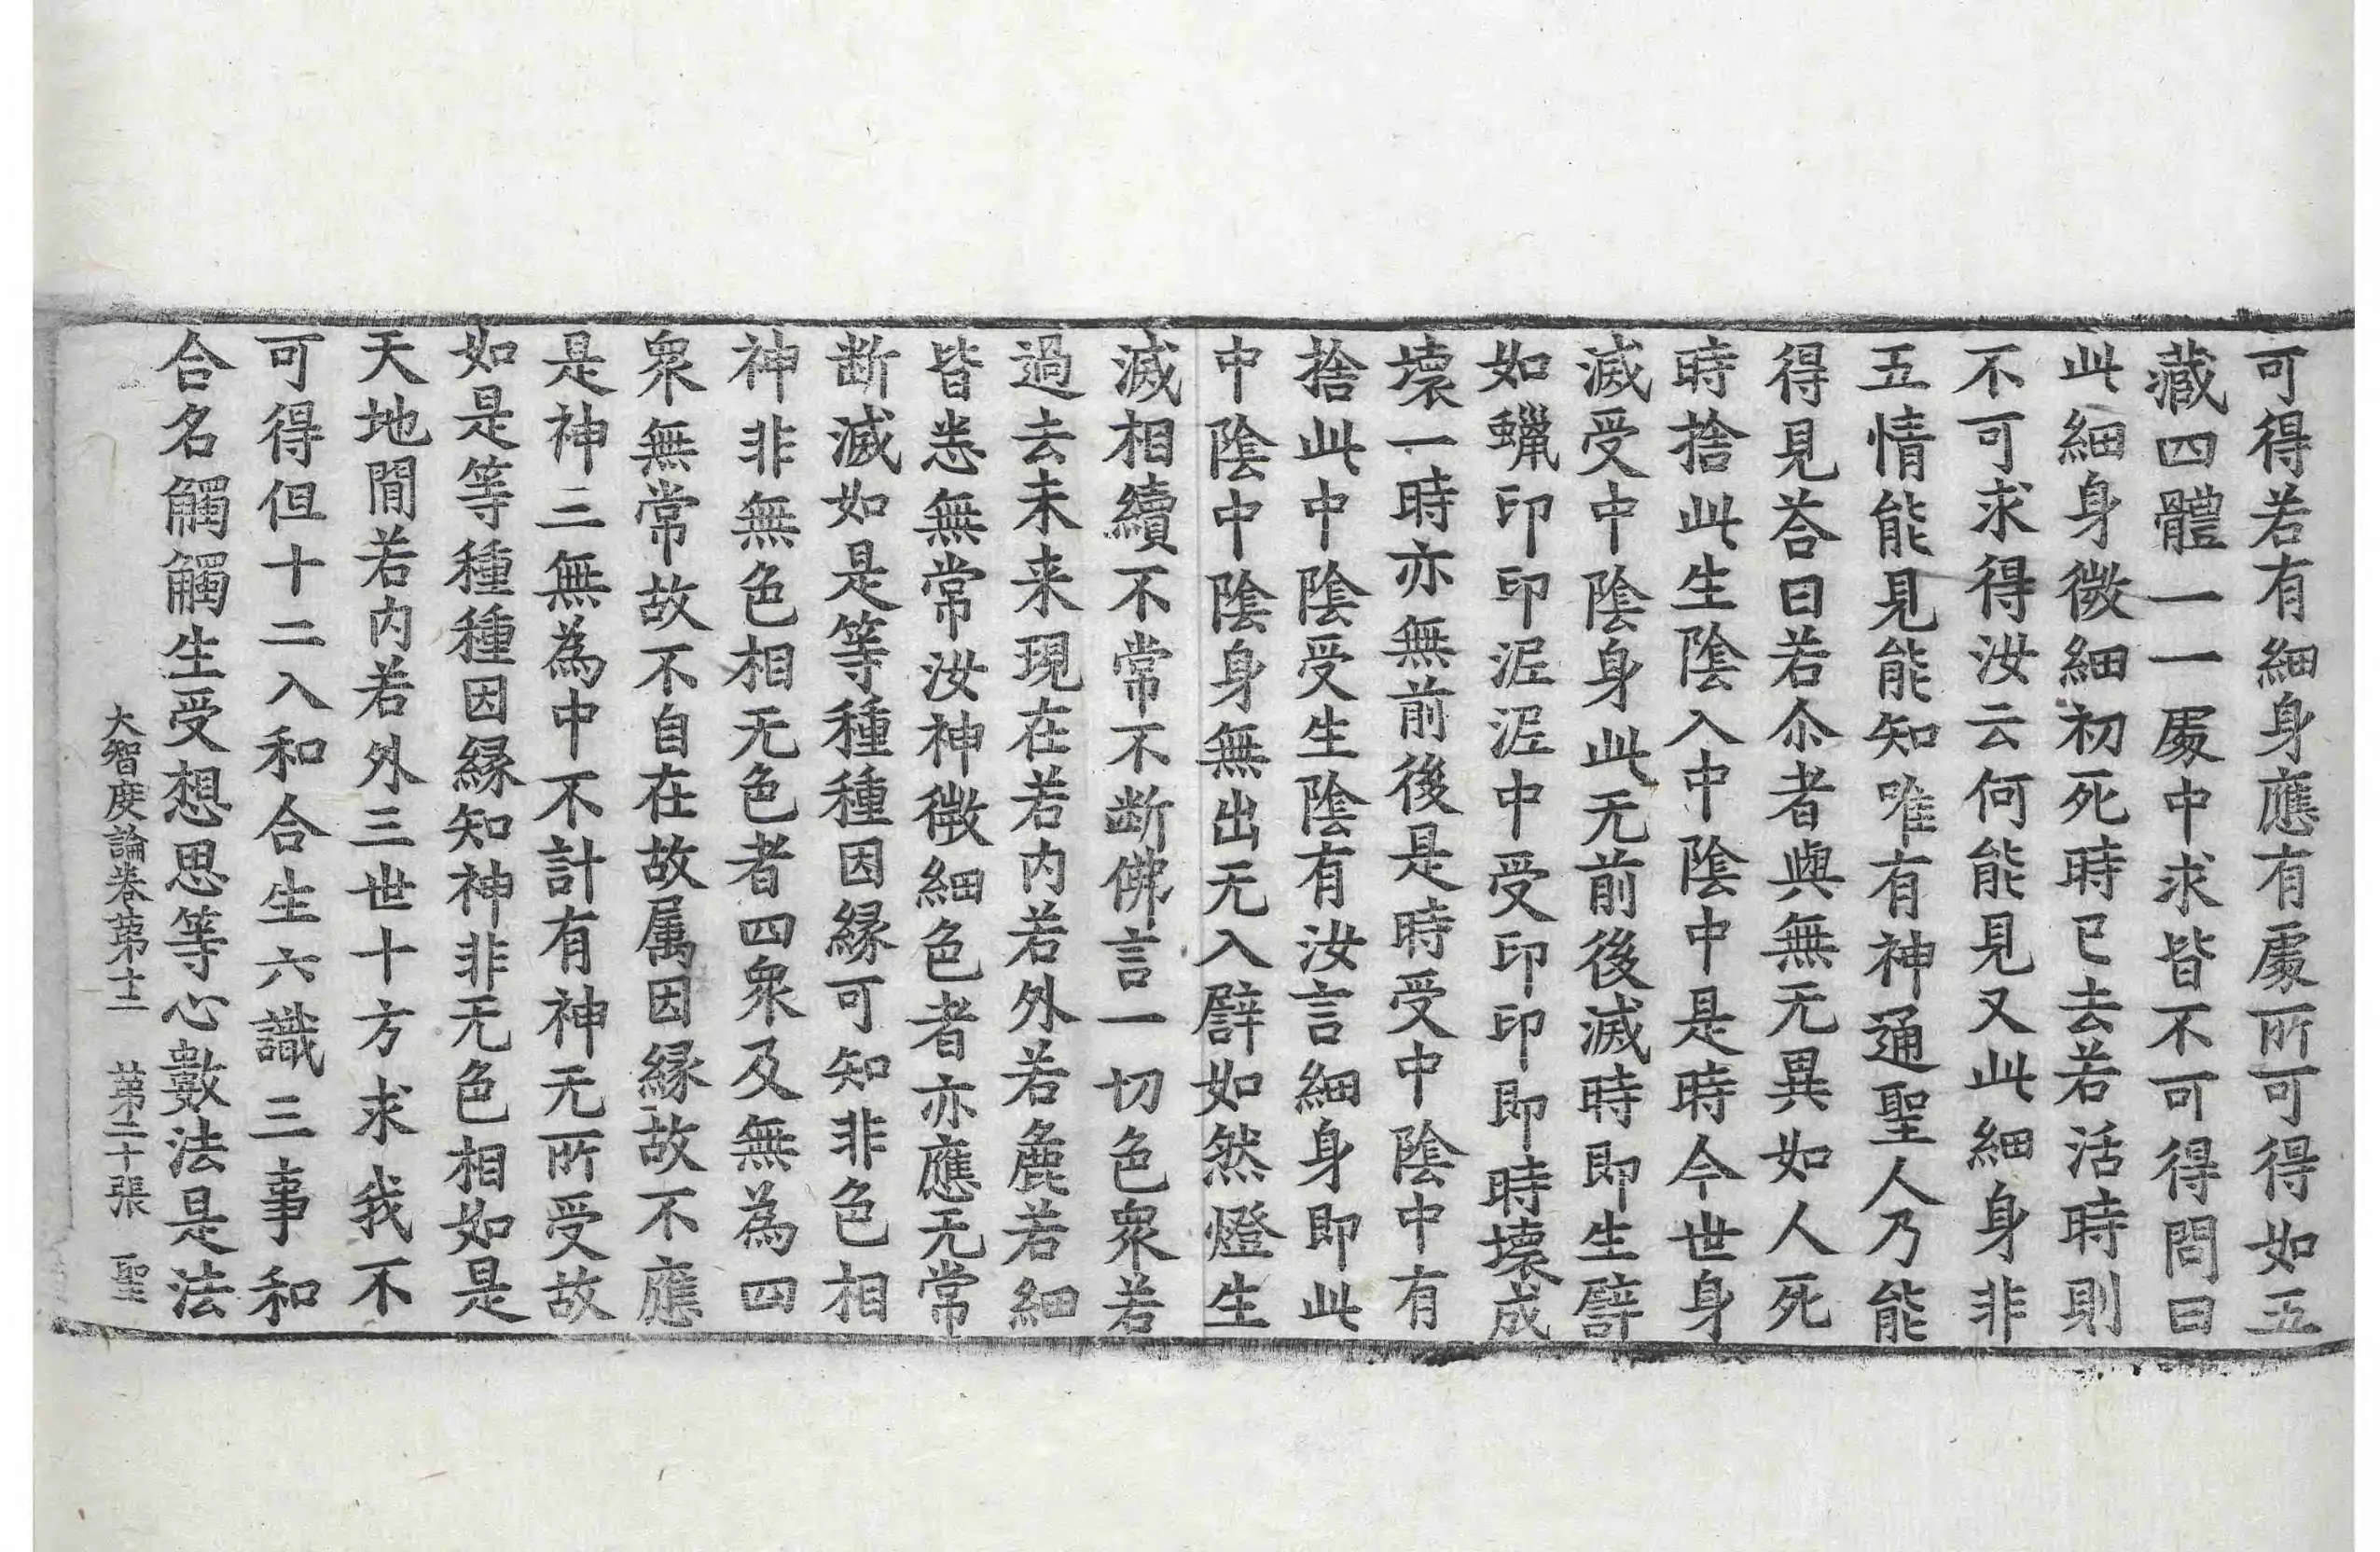 可得若有細身應有處所可得如五
藏四體一一處中求皆不可得問曰
此細身微細初死時已去若活時則
不可求得汝云何能見又此細身非
五情能見能知唯有神通聖人乃能
得見荅曰若尒者與無无異如人死
時捨此生陰入中陰中是時今世身
滅受中陰身此无前後滅時即生譬
如蠟印印泥泥中受印印即時壞成
壞一時亦無前後是時受中陰中有
捨此中陰受生陰有汝言細身即此
中陰中陰身無出无入譬如然燈生
滅相續不常不断佛言一切色衆若
過去未来現在若内若外若麁若細
皆悉無常汝神微細色者亦應无常
断滅如是等種種因縁可知非色相
神非無色相无色者四衆及無為四
衆無常故不自在故属因縁故不應
是神三無為中不計有神无所受故
如是等種種因縁知神非无色相如是
天地間若内若外三世十方求我不
可得但十二入和合生六識三事和
合名觸觸生受想思等心數法是法
大智度論卷苐十二　苐二十張　聖